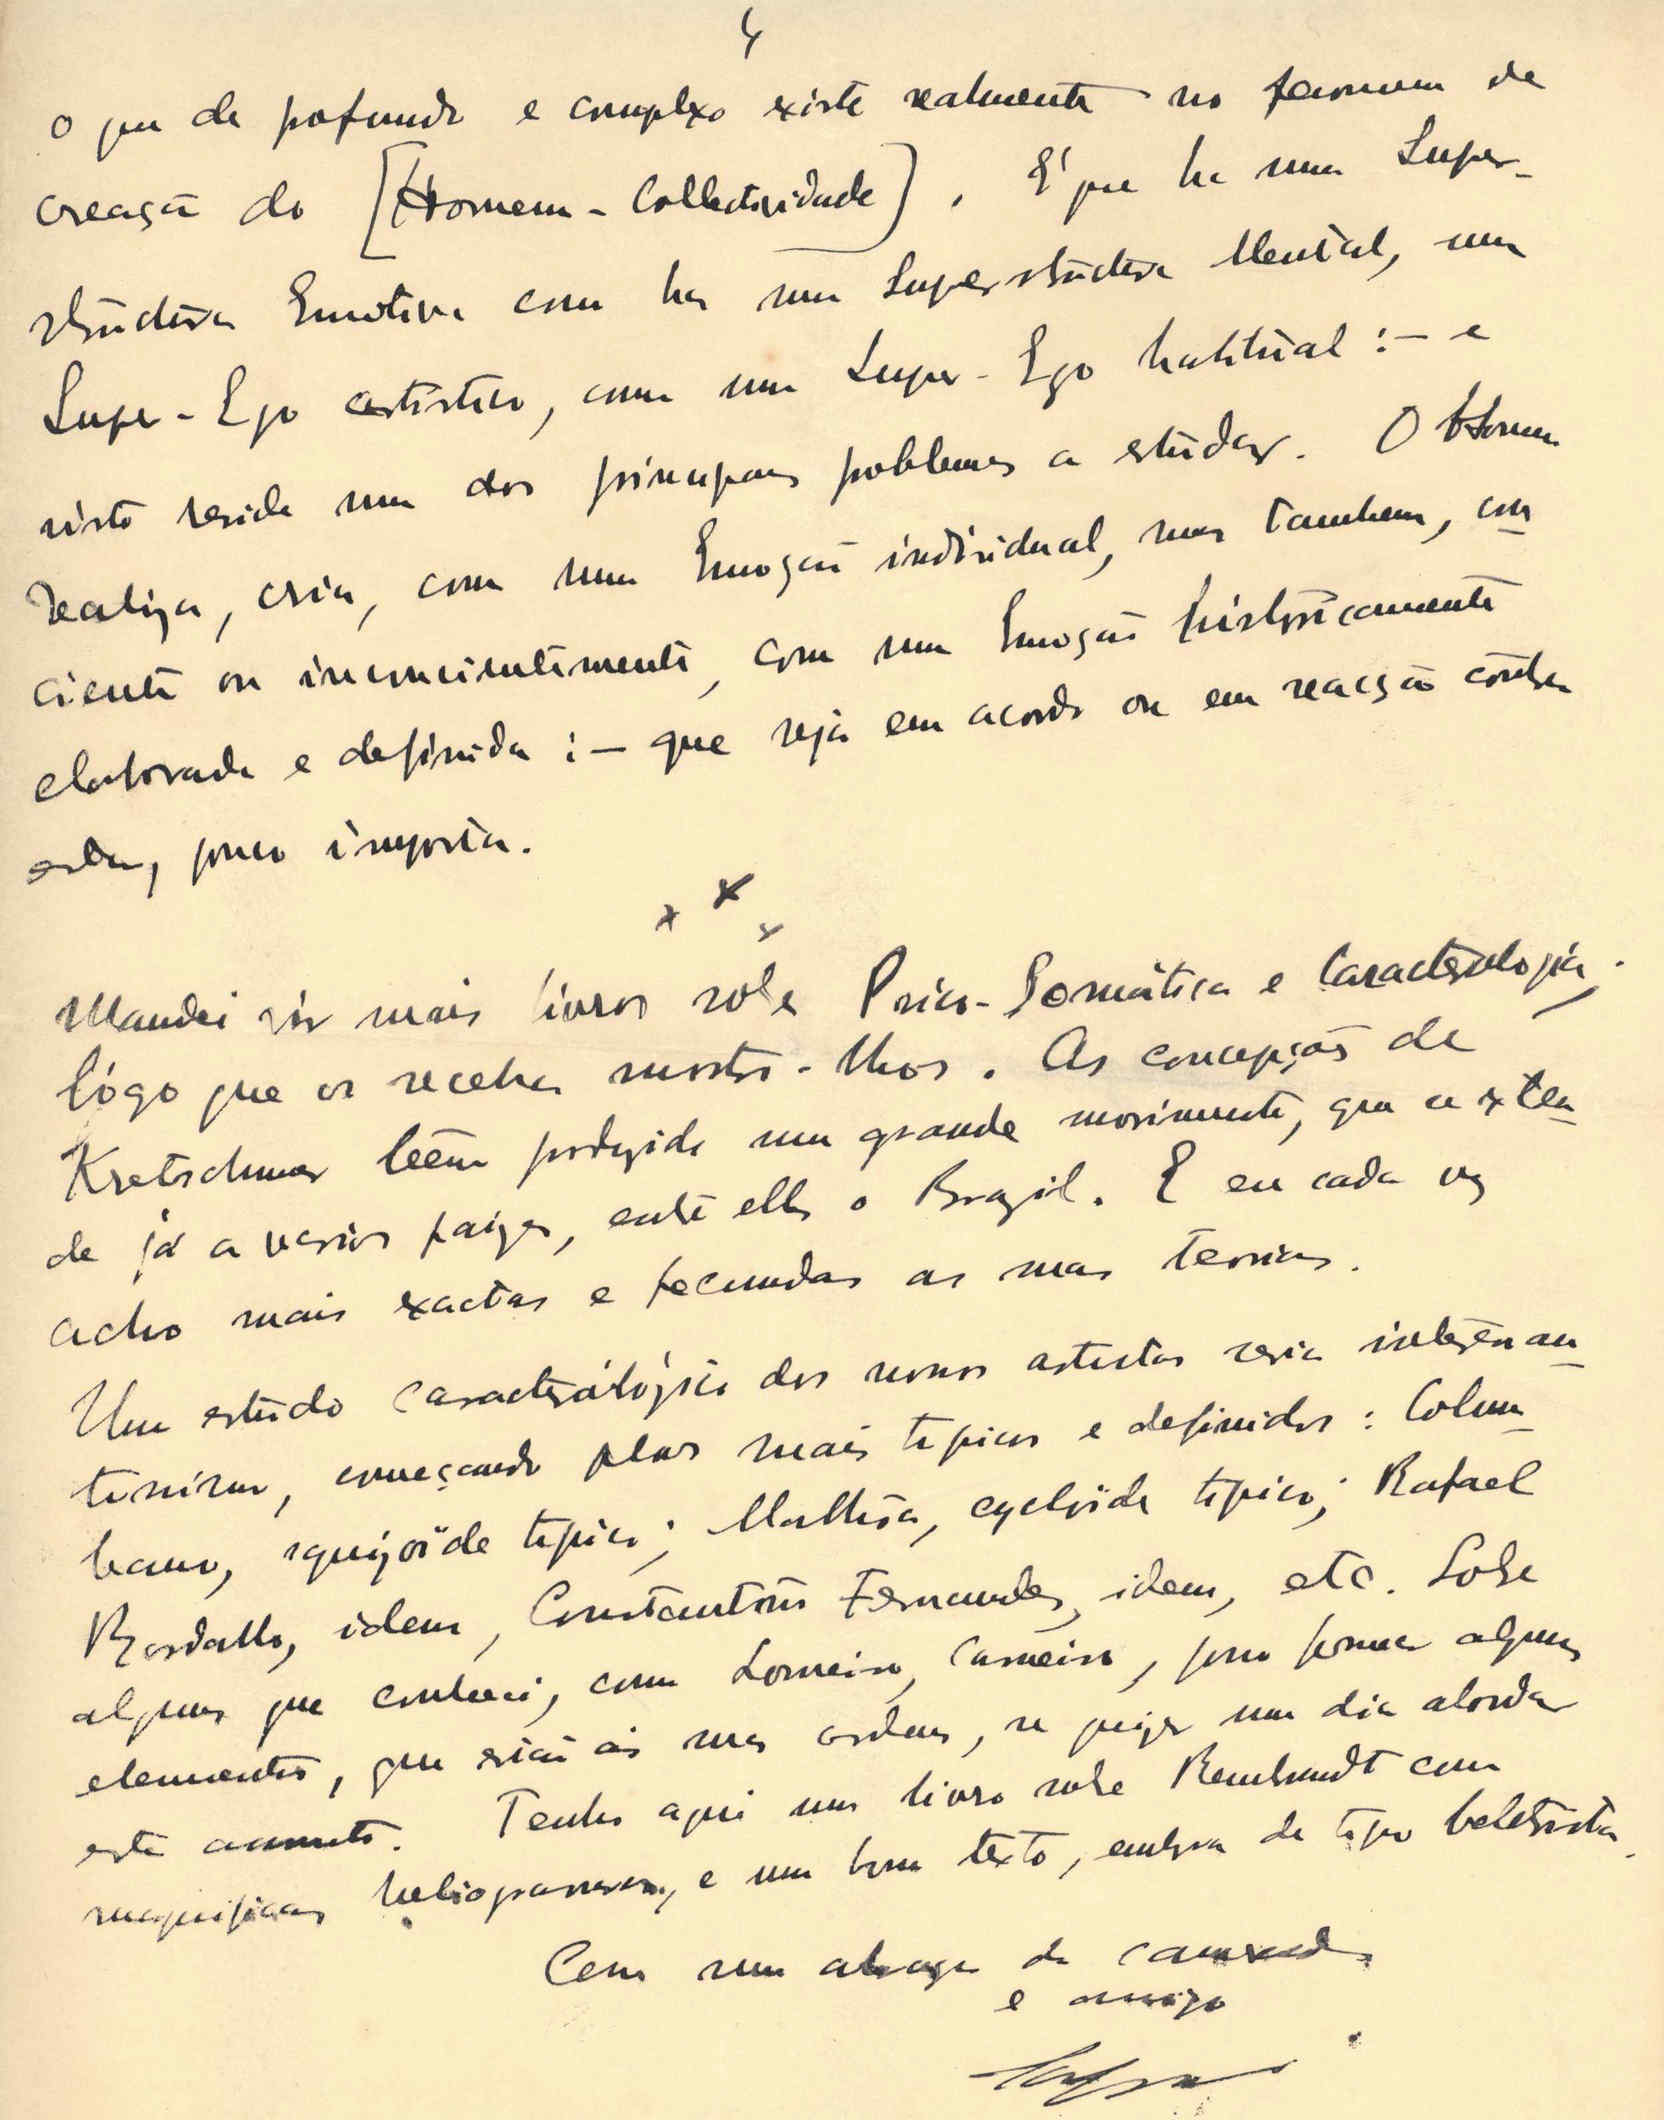 4
O que de profundo e complexo existe realmente no fenomeno de
creação do [Homem-Collectividade]. É que ha uma Super-
structura Emotiva como ha uma Superstructura Mental, um
Super-Ego artistico, como um Super-Ego habitual :- e
nisto reside um dos principaes problemas a estudar. O Homem
realiza, cria, com uma Emoção individual, mas tambem, con-
ciente ou inconcientemente, com uma Emoção historicamente
elaborada e definida :- que seja em acordo ou em reacção contra
esta, pouco importa.
x x x
Mandei vir mais livros sobre Psico-Somática e Caracterologia,
lógo que os receba mostro-lhos. As concepções de
Kretschmer teem produzido um grande movimento, que se exten-
de já a varios paizes, entre elles o Brazil. E eu cada vez
acho mais exactas e fecundas as suas teorias.
Um estudo caracterológico dos nossos artistas seria interessan-
tissimo, começando pelos mais tipicos e definidos : Colum-
bano, squizoïde tipico; Malhôa, cycloïde tipico; Rafael
Bordallo, idem, Constantino Fernandes, idem, etc. Sobre
alguns que conheci, como Loureiro, Carneiro, posso fornecer alguns
elementos, que estão ás suas ordens, se quizer um dia abordar
este assumto. Tenho aqui um livro sobre Rembrandt com
magnificas heliogravuras, e um bom texto, embora de tipo beletrista.
Com um abraço de camarada
e amigo